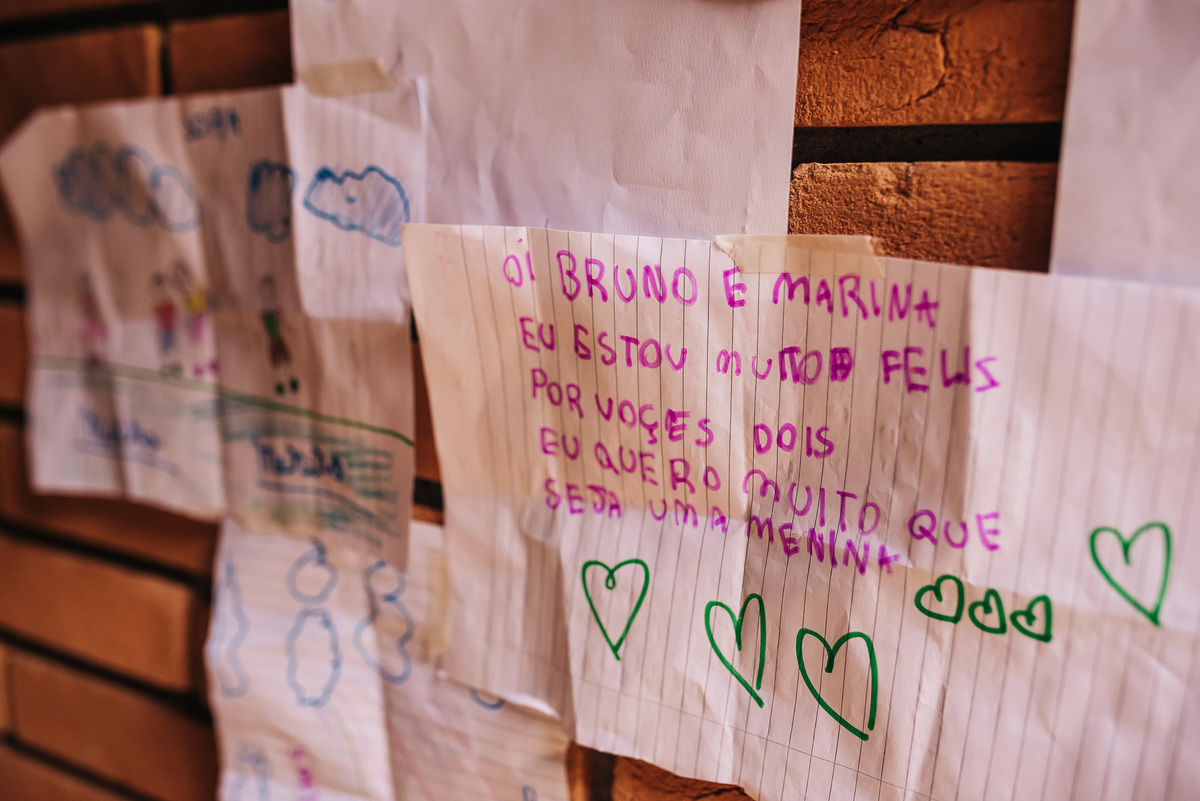 Oi BRUNO E MARINA
EU ESTOU MUITO FELIS
POR VOÇES DOIS
EU QUERO MUITO QUE
SEJA UMA MENINA